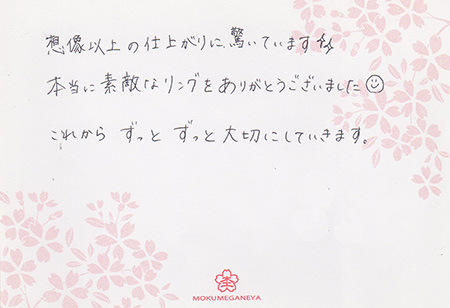 想像以上の仕上がりに驚いています
本当に素敵なリングをありがとうございました☺
これから ずっと ずっと大切にしていきます。
MOKUMEGANEYA